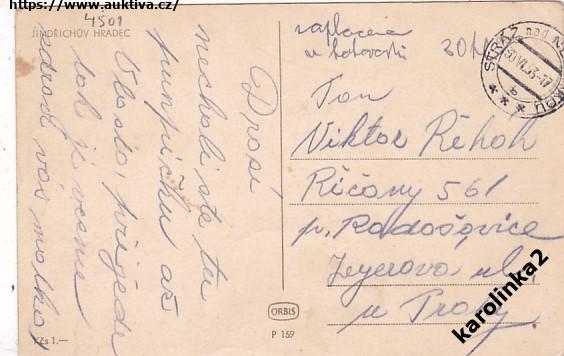 https://www.auktiva.cz/
4501
JINDŘICHŮV HRADEC
Drazí
nechali ste tu
punčišku až
Vlasta, přijede
tak je vezme
zdraví vás matka
Kčs 1.—
zaplaceno
v hotovosti
30 h
STRÁŽ nad NEŽÁRKOU
30.VI.53-17
b
Pan
Viktor Řehoř
Říčany 561
p. Radošovice
Zeyerova ul.
u Prahy
ORBIS
P 159
karolinka2